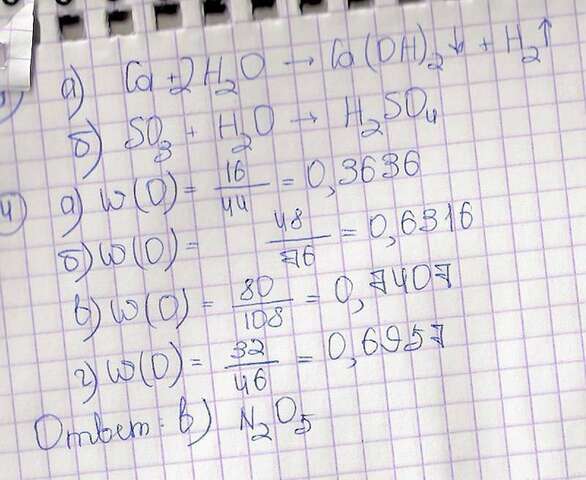 а) Ca + 2H₂O → Ca(OH)₂↓ + H₂↑
б) SO₃ + H₂O → H₂SO₄
4) а) W(O) = 16/44 = 0,3636
б) W(O) = 48/76 = 0,6316
в) W(O) = 80/108 = 0,7407
г) W(O) = 32/46 = 0,6957
Ответ: в) N₂O₅